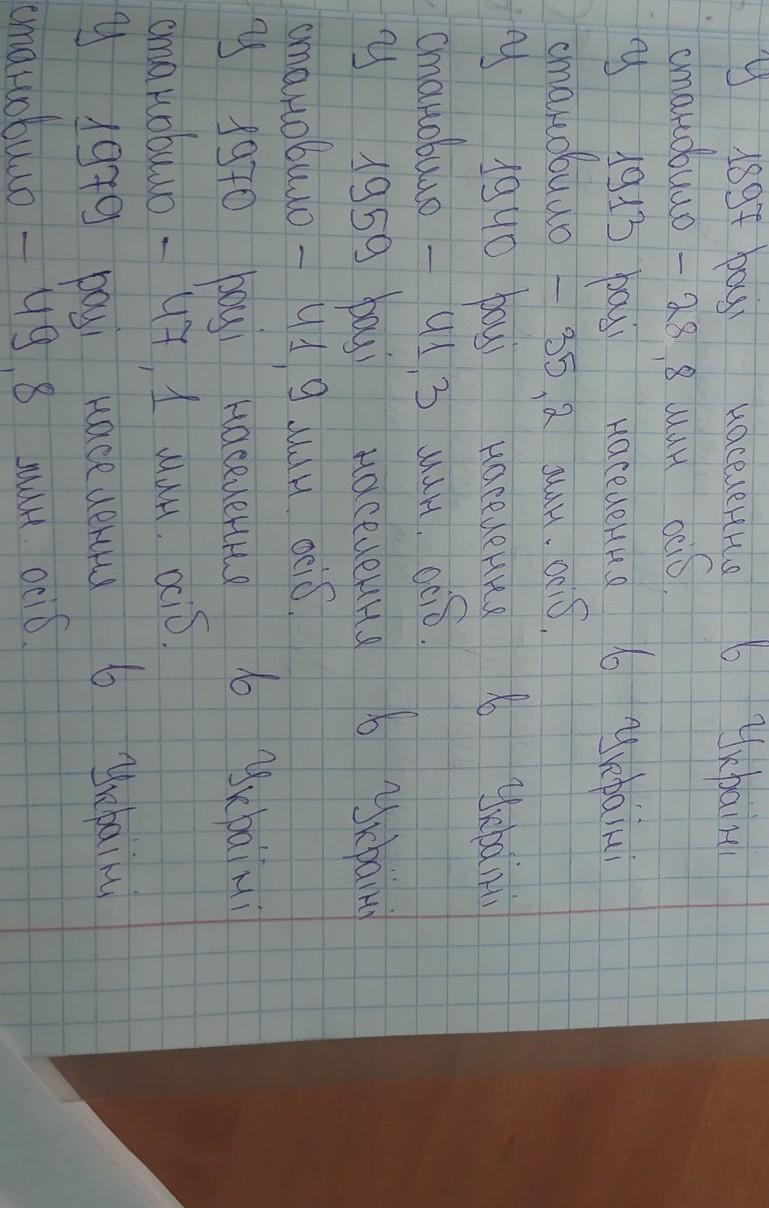 У 1897 році населення в Україні
становило – 28,8 млн осіб.
У 1913 році населення в Україні
становило – 35,2 млн. осіб.
У 1940 році населення в Україні
становило – 41,3 млн. осіб.
У 1959 році населення в Україні
становило – 41,9 млн. осіб.
У 1970 році населення в Україні
становило – 47,1 млн. осіб.
У 1979 році населення в Україні
становило – 49,8 млн. осіб.